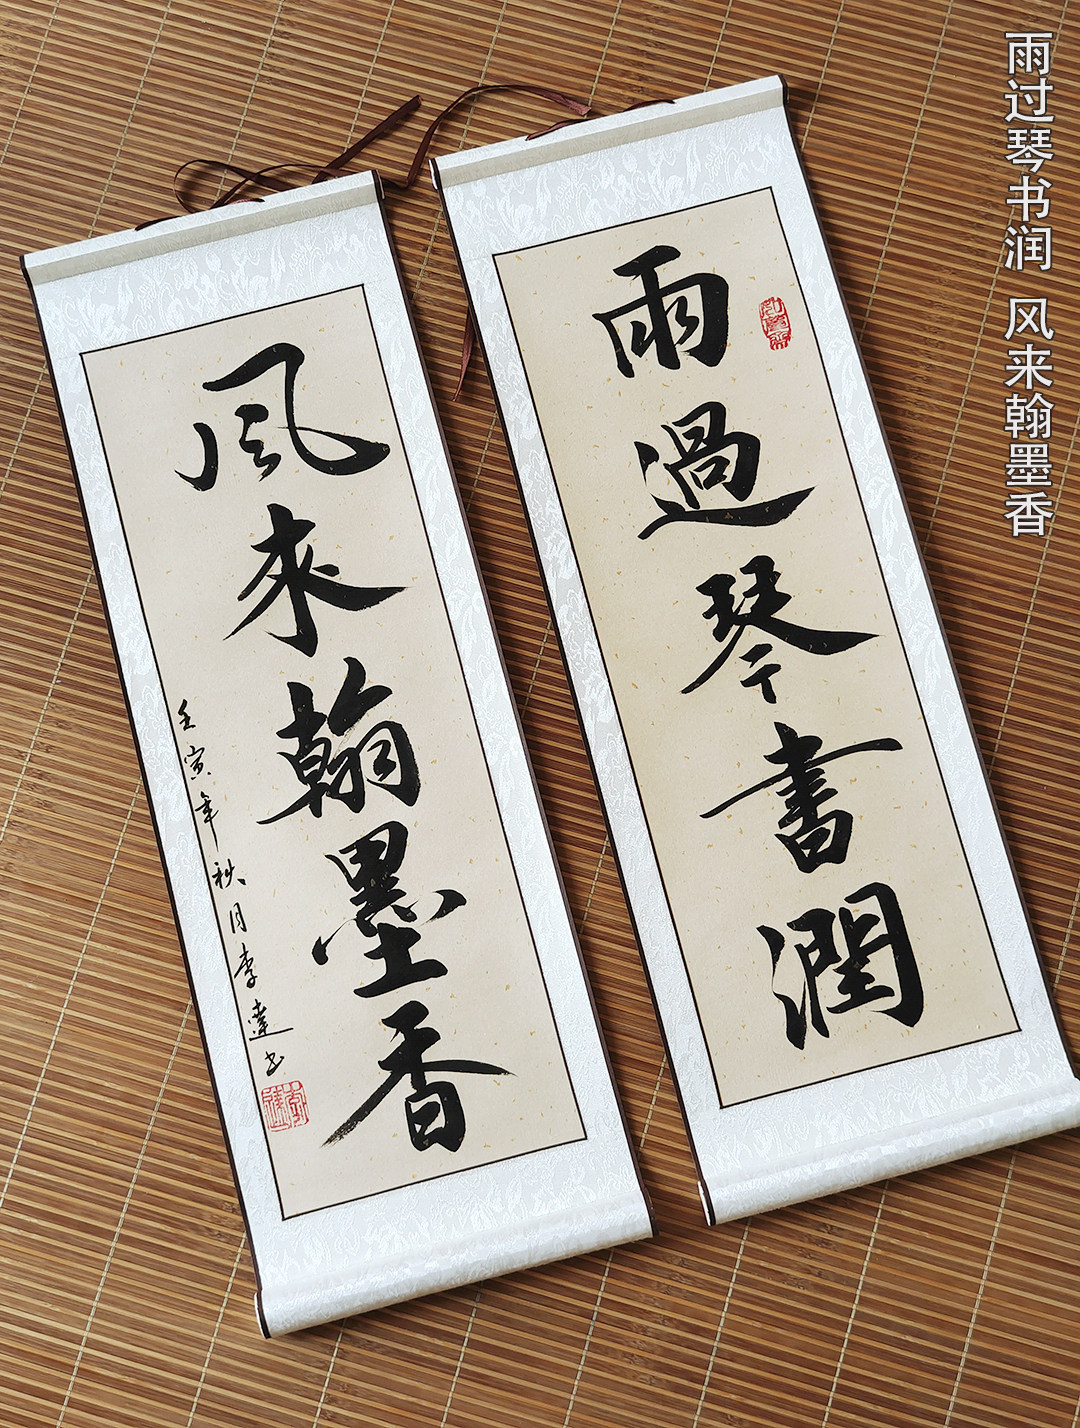 雨过琴书润 风来翰墨香
雨過琴書潤
風来翰墨香
壬寅年秋月李達书